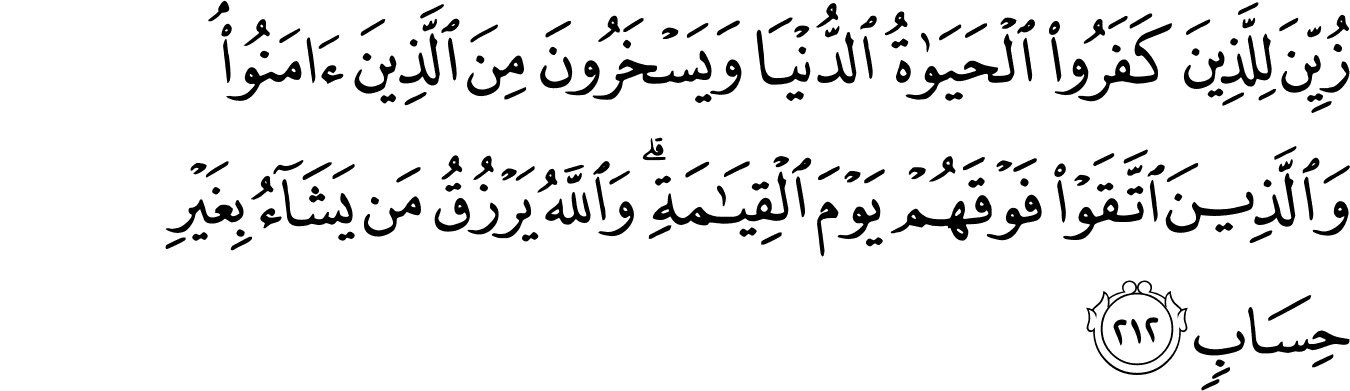 زُيِّنَ لِلَّذِينَ كَفَرُوا۟ ٱلْحَيَوٰةُ ٱلدُّنْيَا وَيَسْخَرُونَ مِنَ ٱلَّذِينَ ءَامَنُوا۟ ۘ
وَٱلَّذِينَ ٱتَّقَوْا۟ فَوْقَهُمْ يَوْمَ ٱلْقِيَـٰمَةِ ۗ وَٱللَّهُ يَرْزُقُ مَن يَشَآءُ بِغَيْرِ
حِسَابٍ ٢١٢